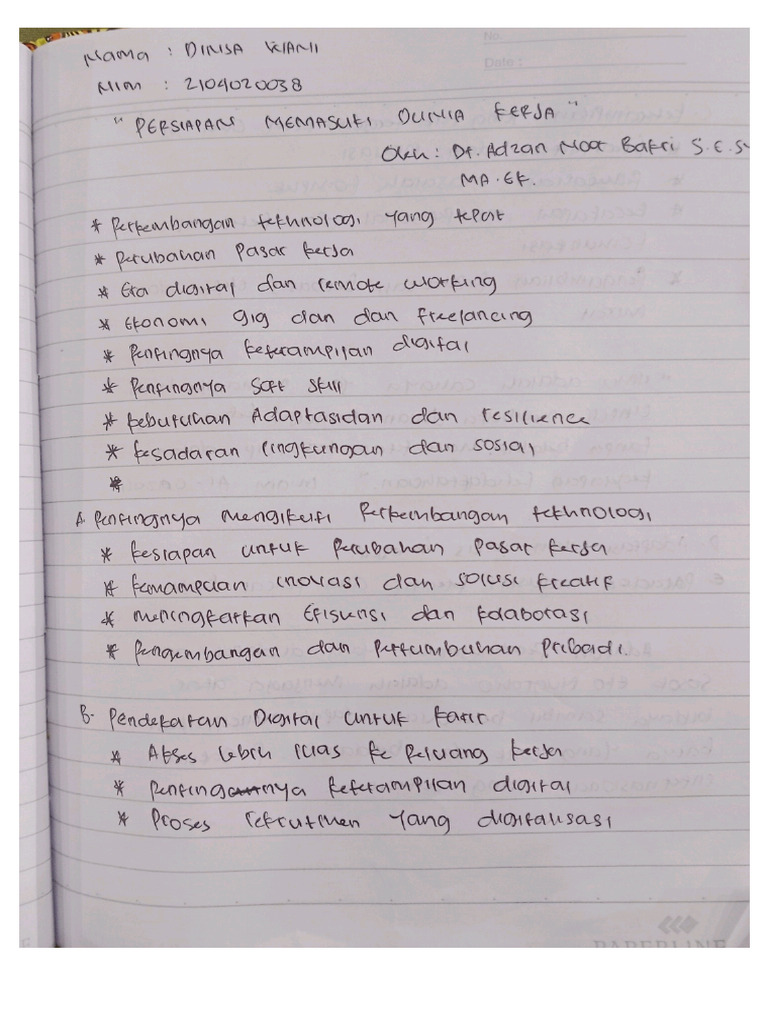 No.
Date :
Nama : DINSA WIANI
NIM : 2104020038
"PERSIAPAN MEMASUKI DUNIA KERJA"
Oleh : Dr. Adzan Noor Bakri S.E.Sy
MA.Ek.
* Perkembangan tekhnologi yang tepat
* Perubahan Pasar kerja
* Era digital dan remote working
* Ekonomi gig dan dan freelancing
* Pentingnya keterampilan digital
* Pentingnya Soft Skill
* kebutuhan Adaptasidan dan resilience
* kesadaran lingkungan dan sosial
*
A. Pentingnya mengikuti Perkembangan tekhnologi
* kesiapan untuk Perubahan Pasar kerja
* kemampuan inovasi dan solusi kreatif
* meningkatkan Efisiensi dan kolaborasi
* Pengembangan dan Pertumbuhan Pribadi.
B. Pendekatan Digital untuk karir
* Akses lebih luas ke Peluang kerja
* Pentingnya keterampilan digital
* Proses rekrutmen yang digitalisasi
PAPERLINE